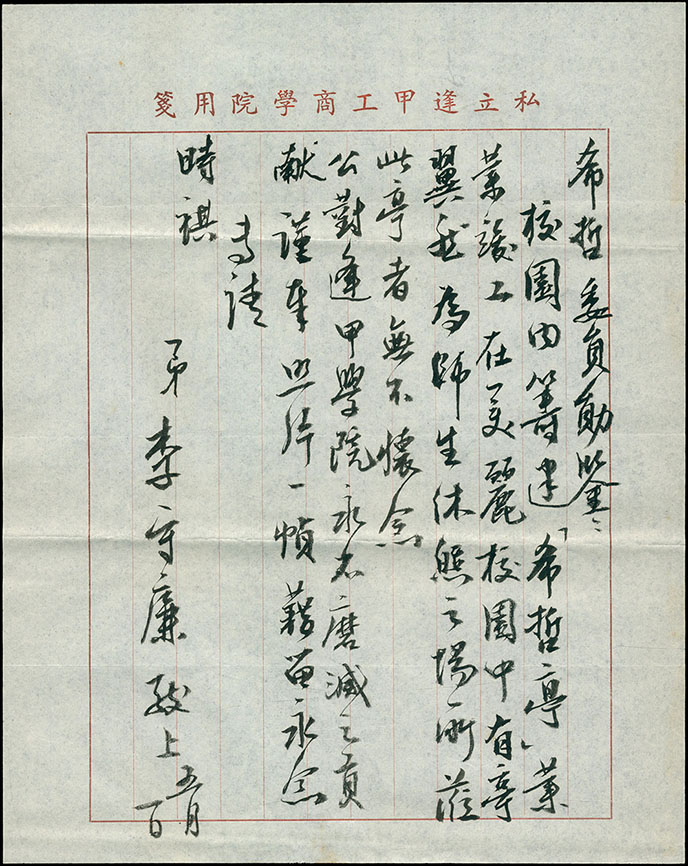 私立逢甲工商學院用箋
希哲委員勛鑒：
校園内籌建「希哲亭」業
業竣工在美麗校園中有亭
翼然為師生休憩之場所蒞
此亭者無不懷念
公對逢甲學院永不磨滅之貢
献謹奉照片一幀藉留永念
專請
時祺
弟李守廉敬上五月
一日